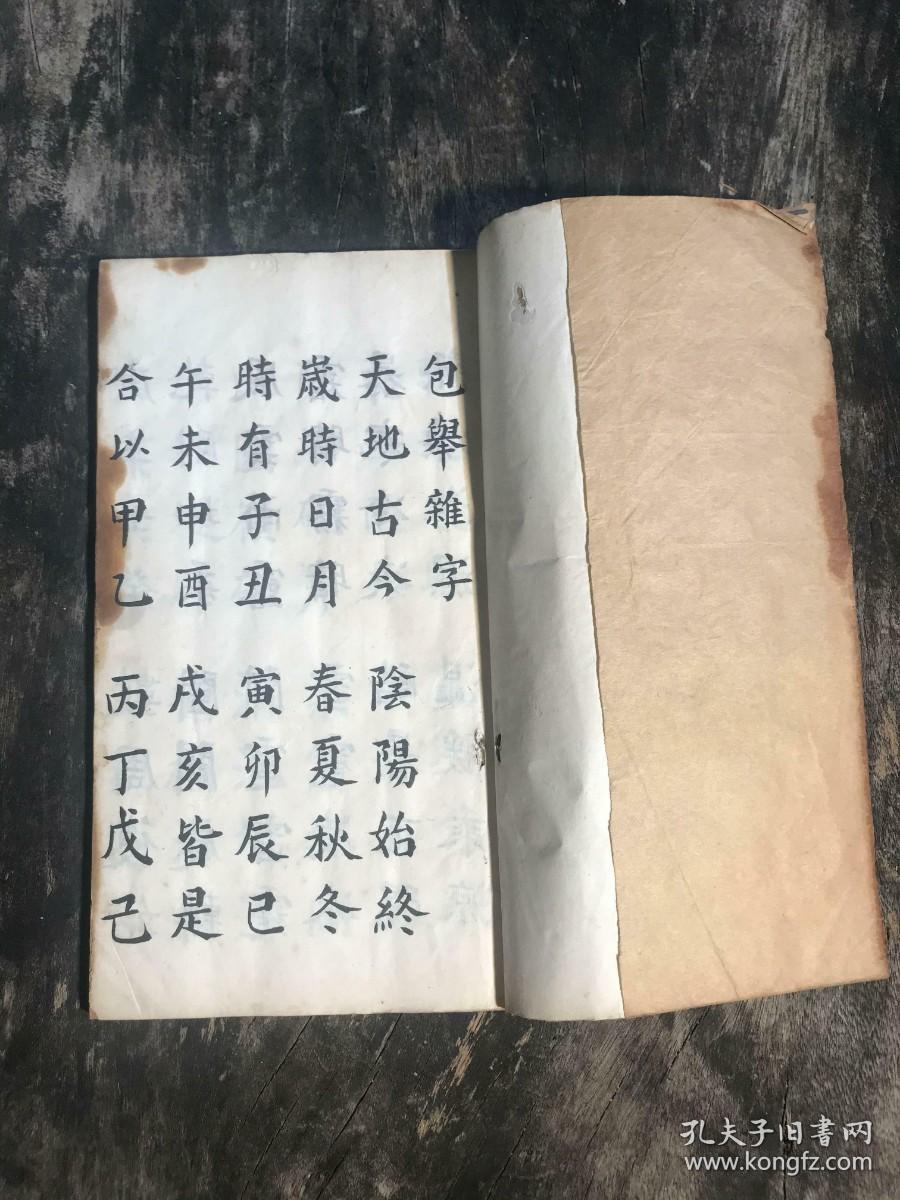 包舉雜字
天地古今　陰陽始終
歲時日月　春夏秋冬
時有子丑　寅卯辰巳
午未申酉　戌亥皆是
合以甲乙　丙丁戊己
孔夫子旧書网
www.kongfz.com